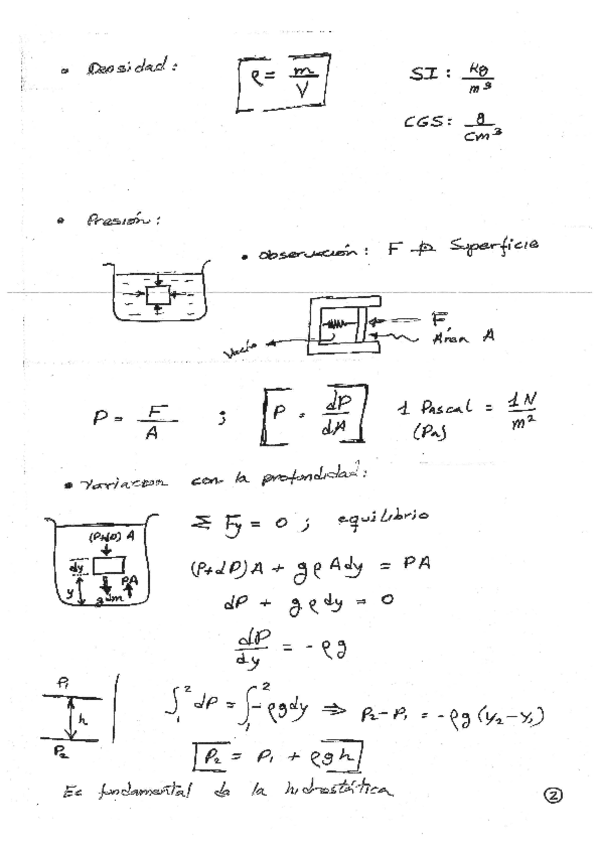 • Densidad:
ρ = m/V
SI: kg/m³
CGS: g/cm³
• Presión:
• Observación: F ⊥ Superficie
F
Área A
Vacío
P = F/A ; P = dP/dA 1 Pascal = 1N/m²
(Pa)
• Variacion con la profundidad:
(P+dP) A
dy
y
PA
g dm
Σ Fy = 0 ; equilibrio
(P+dP)A + gρAdy = PA
dP + gρdy = 0
dP/dy = -ρg
P₁
h
P₂
∫₁² dP = ∫₁² -ρgdy ⇒ P₂-P₁ = -ρg(y₂-y₁)
P₂ = P₁ + ρgh
Ec fundamental de la hidrostática
2